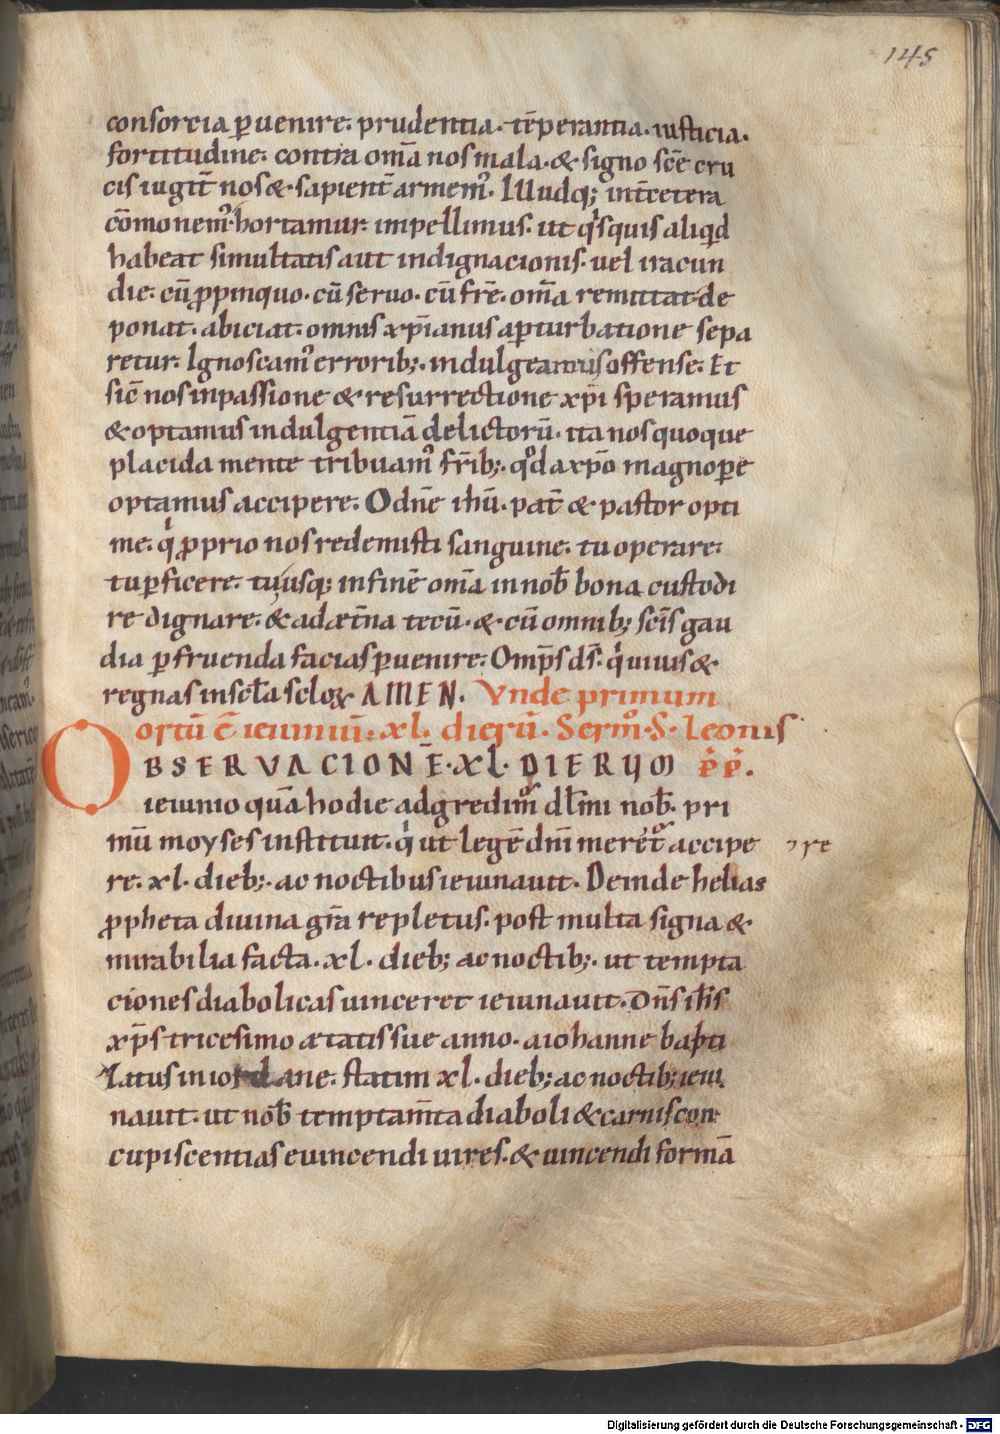 145
consorcia ꝑuenire. prudentia. tēperantia. iusticia.
fortitudine. contra om̄a nos mala. & signo sc̄e cru
cis iugit̄ nos & sapient̄ armem᾽. Illudq; int̄ cetera
cōmonem᾽. hortamur. impellimus. ut qͥsquis aliqͥd
habeat simultatis aut indignacionis. uel iracun
die. cū ꝓpinquo. cū seruo. cū fr̄e. om̄a remittat. de
ponat. abiciat. omnis xp̄ianus a ꝑturbatione sepa
retur. Ignoscam᾽ errorib;. indulgeamus offense. Et
sic̄ nos in passione & resurrectione xp̄i speramus
& optamus indulgentiā delictorū. ita nos quoque
placida mente tribuam᾽ fr̄ib;. qͦd a xp̄o magnoꝑe
optamus accipere. O dn̄e ih̄u. pat̄ & pastor opti
me. qͥ ꝓprio nos redemisti sanguine. tu operare.
tu ꝑficere. tu usq; in finē om̄a in nob̄ bona custodi
re dignare. & ad æt̄na tecū. & cū omnib; sc̄is gau
dia ꝑfruenda facias ꝑuenire. Omp̄s ds̄. qͥ uiuis &
regnas in scl̄a scloꝝ AMEN. Vnde primum
ortū ē ieiuniū. xl. dierū. Serm̊. S. Leonis
OBSERVACIONĒ. XL. DIERUM P̣P̣.
ieiunio quā hodie adgredimᷣ dl̄mi nob̄. pri
mū moyses instituit. qͥ ut legē dn̄i meret̄ᷣ accipe
re
re. xl. dieb;. ac noctibus ieiunauit. Deinde helias
ꝓpheta diuina gr̄a repletus. post multa signa &
mirabilia facta. xl. dieb; ac noctib;. ut tempta
ciones diabolicas uinceret ieiunauit. Dn̄s ih̄s
xp̄s tricesimo ætatis sue anno. a iohanne bapti
zatus in iordane. statim xl. dieb; ac noctib; ieiu
nauit. ut nob̄ temptam̄ta diaboli & carnis con
cupiscentias euincendi uires. & uincendi formā
Digitalisierung gefördert durch die Deutsche Forschungsgemeinschaft - DFG